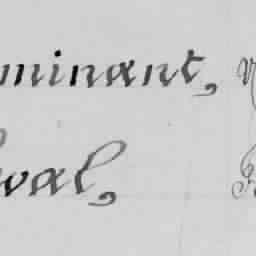 minant,
val,